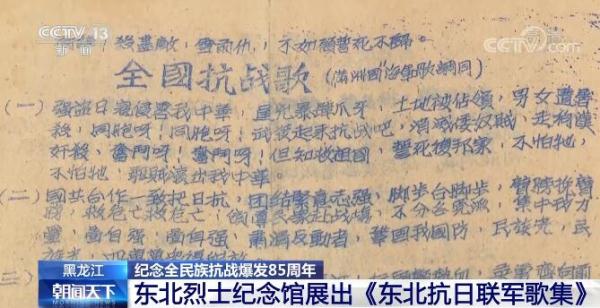 CCTV 13
新闻
殺盡敵，雪 仇，不如願誓死不歸。
全國抗战歌（滿州國海軍歌調同）
（一）强盗日寇侵畧我中華，逞兇暴肆爪牙，土地被佔領，男女遭
殺，同胞呀！同胞呀！武装起来抗战吧，消滅倭奴賊，走狗漢
奸殺，奮鬥呀！奮鬥呀！但知救祖國，誓死 邦家，不怕牠，
不怕牠， 賊滾出我中華。
（二）國共合作一致把日抗，团结緊意志强，脚步合脚步，臂膀挽臂
膀，救危亡救危亡，領導民衆赴战場，不分各党派，集中我力
量，齊自强，齊自强，肅清反動者，鞏固我國防，民族光，民
族光，
黑龙江
纪念全民族抗战爆发85周年
朝闻天下
东北烈士纪念馆展出《东北抗日联军歌集》